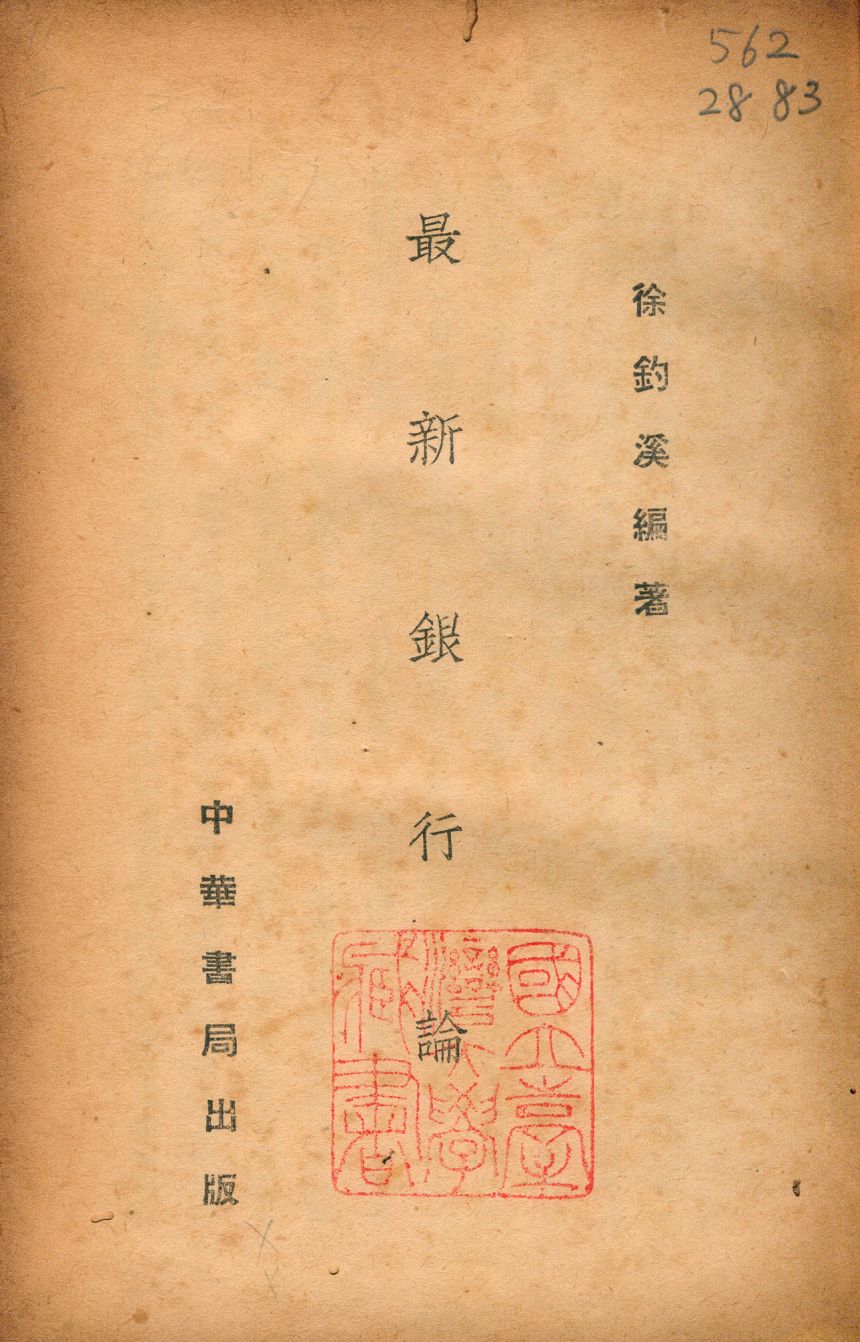 562
28 83
徐釣溪編著
最新銀行論
中華書局出版
國立臺
灣大學
藏書